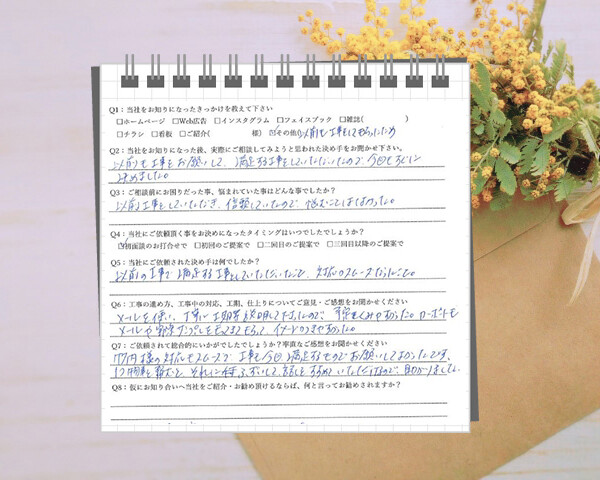 Q1：当社をお知りになったきっかけを教えて下さい
□ホームページ □Web広告 □インスタグラム □フェイスブック □雑誌( )
□チラシ □看板 □ご紹介( 様) ☑その他(以前も工事をしてもらったため
Q2：当社をお知りになった後、実際にご相談してみようと思われた決め手をお聞かせ下さい。
以前も工事をお願いして、満足する工事をしていただいたので、今回もすぐに
決めました。
Q3：ご相談前にお困りだった事、悩まれていた事はどんな事でしたか？
以前工事をしていただき、信頼していたので、悩むことはなかった。
Q4：当社にご依頼頂く事をお決めになったタイミングはいつでしたでしょうか？
☑初面談のお打合せで □初回のご提案で □二回目のご提案で □三回目以降のご提案で
Q5：当社にご依頼された決め手は何でしたか？
以前の工事で満足する工事をしていただいたこと、対応もスムーズだったこと。
Q6：工事の進め方、工事中の対応、工期、仕上りについてご意見・ご感想をお聞かせください
メールを使い、丁寧に工期等説明して下さったので、予定もくみやすかった。
メールや サンプルを もらって、イメージのつきやすかった。
Q7：ご依頼されて総合的にいかがでしたでしょうか？率直なご感想をお聞かせください
様の対応もスムーズで、工事も今回満足するものでお願いしてよかったです。
それに 話しを すすめていただけたので、助かりました。
Q8：仮にお知り合いへ当社をご紹介・お勧め頂けるならば、何と言ってお勧めされますか？